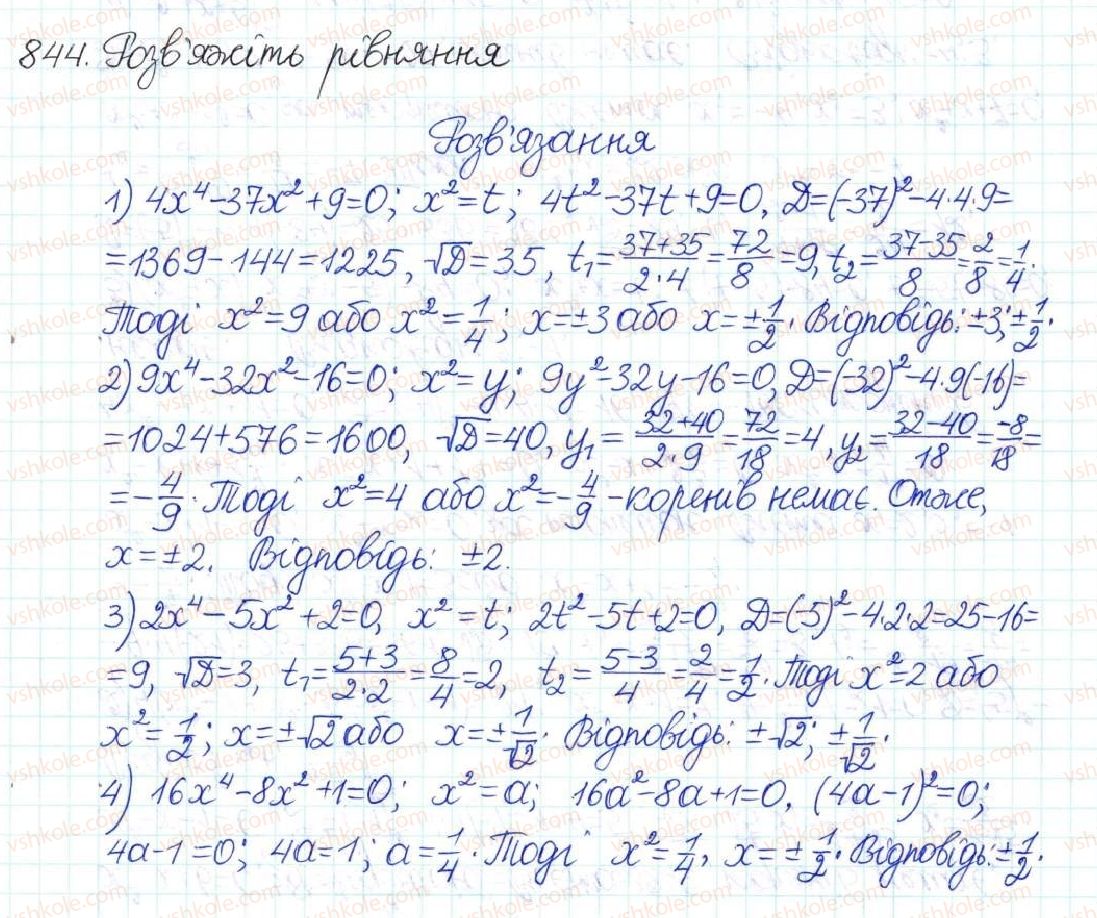 844. Розв'яжіть рівняння
Розв'язання
1) 4x⁴-37x²+9=0; x²=t; 4t²-37t+9=0, D=(-37)²-4·4·9=
=1369-144=1225, √D=35, t₁=(37+35)/(2·4)=72/8=9, t₂=(37-35)/8=2/8=1/4.
Тоді x²=9 або x²=1/4; x=±3 або x=±1/2. Відповідь: ±3; ±1/2.
2) 9x⁴-32x²-16=0; x²=y; 9y²-32y-16=0, D=(-32)²-4·9(-16)=
=1024+576=1600, √D=40, y₁=(32+40)/(2·9)=72/18=4, y₂=(32-40)/18=-8/18=
=-4/9. Тоді x²=4 або x²=-4/9 - коренів немає. Отже,
x=±2. Відповідь: ±2.
3) 2x⁴-5x²+2=0, x²=t; 2t²-5t+2=0, D=(-5)²-4·2·2=25-16=
=9, √D=3, t₁=(5+3)/(2·2)=8/4=2, t₂=(5-3)/4=2/4=1/2. Тоді x²=2 або
x²=1/2; x=±√2 або x=±1/√2. Відповідь: ±√2; ±1/√2.
4) 16x⁴-8x²+1=0; x²=a; 16a²-8a+1=0, (4a-1)²=0;
4a-1=0; 4a=1; a=1/4. Тоді x²=1/4, x=±1/2. Відповідь: ±1/2.